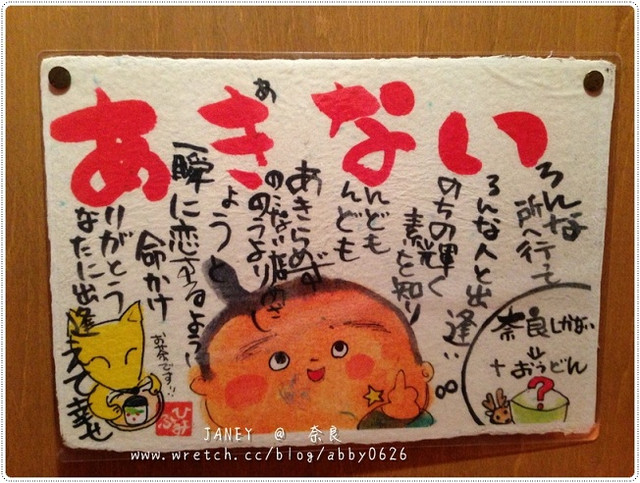 あきない
ろんな
所へ行って
ろんな人と出逢い
のちの輝く
素を知り
んども
んども
あ
あきらめず
のこない店めざし
のうより
ょうと
一瞬に恋するように
命かけ
りがとう
なたに出逢えて幸せ
お茶ですッ!!
奈良しかない
+おうどん
?
JANEY @ 奈良
www.wretch.cc/blog/abby0626